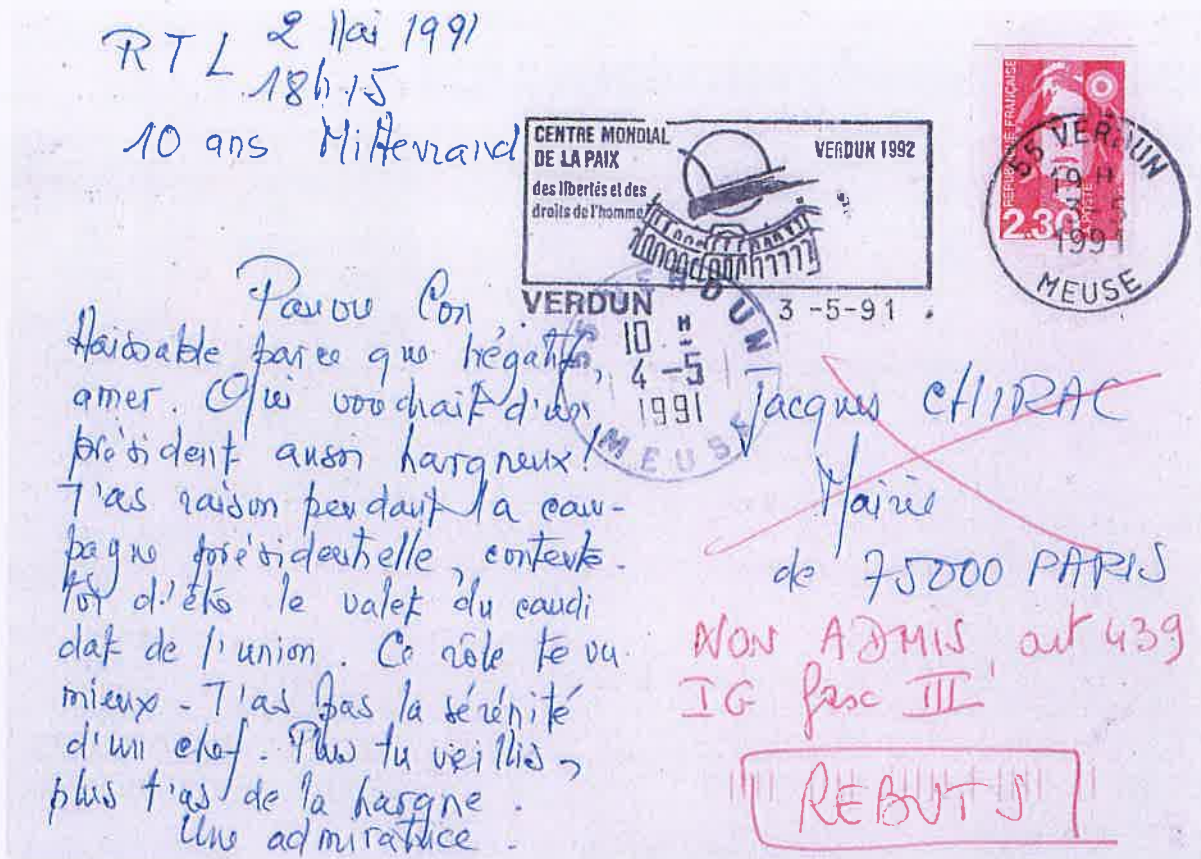 RTL 2 Mai 1991
18h15
10 ans Mitterrand
CENTRE MONDIAL
DE LA PAIX
des libertés et des
droits de l'homme
VERDUN 1992
VERDUN
3 -5-91
REPUBLIQUE FRANÇAISE
LA POSTE
2.30
55 VERDUN
19 H
3 -5
1991
MEUSE
VERDUN
10 H
4 -5
1991
MEUSE
Pauvre Con
Haissable parce que négatif,
amer. Qui voudrait d'un
président aussi hargneux!
T'as raison pendant la cam-
pagne présidentielle, contente-
toi d'être le valet du candi
dat de l'union. Ce rôle te va
mieux - T'as pas la sérénité
d'un chef. Plus tu vieillis,
plus t'as de la hargne.
Une admiratrice.
Jacques CHIRAC
Mairie
de 75000 PARIS
NON ADMIS art 439
IG fasc III
REBUTS